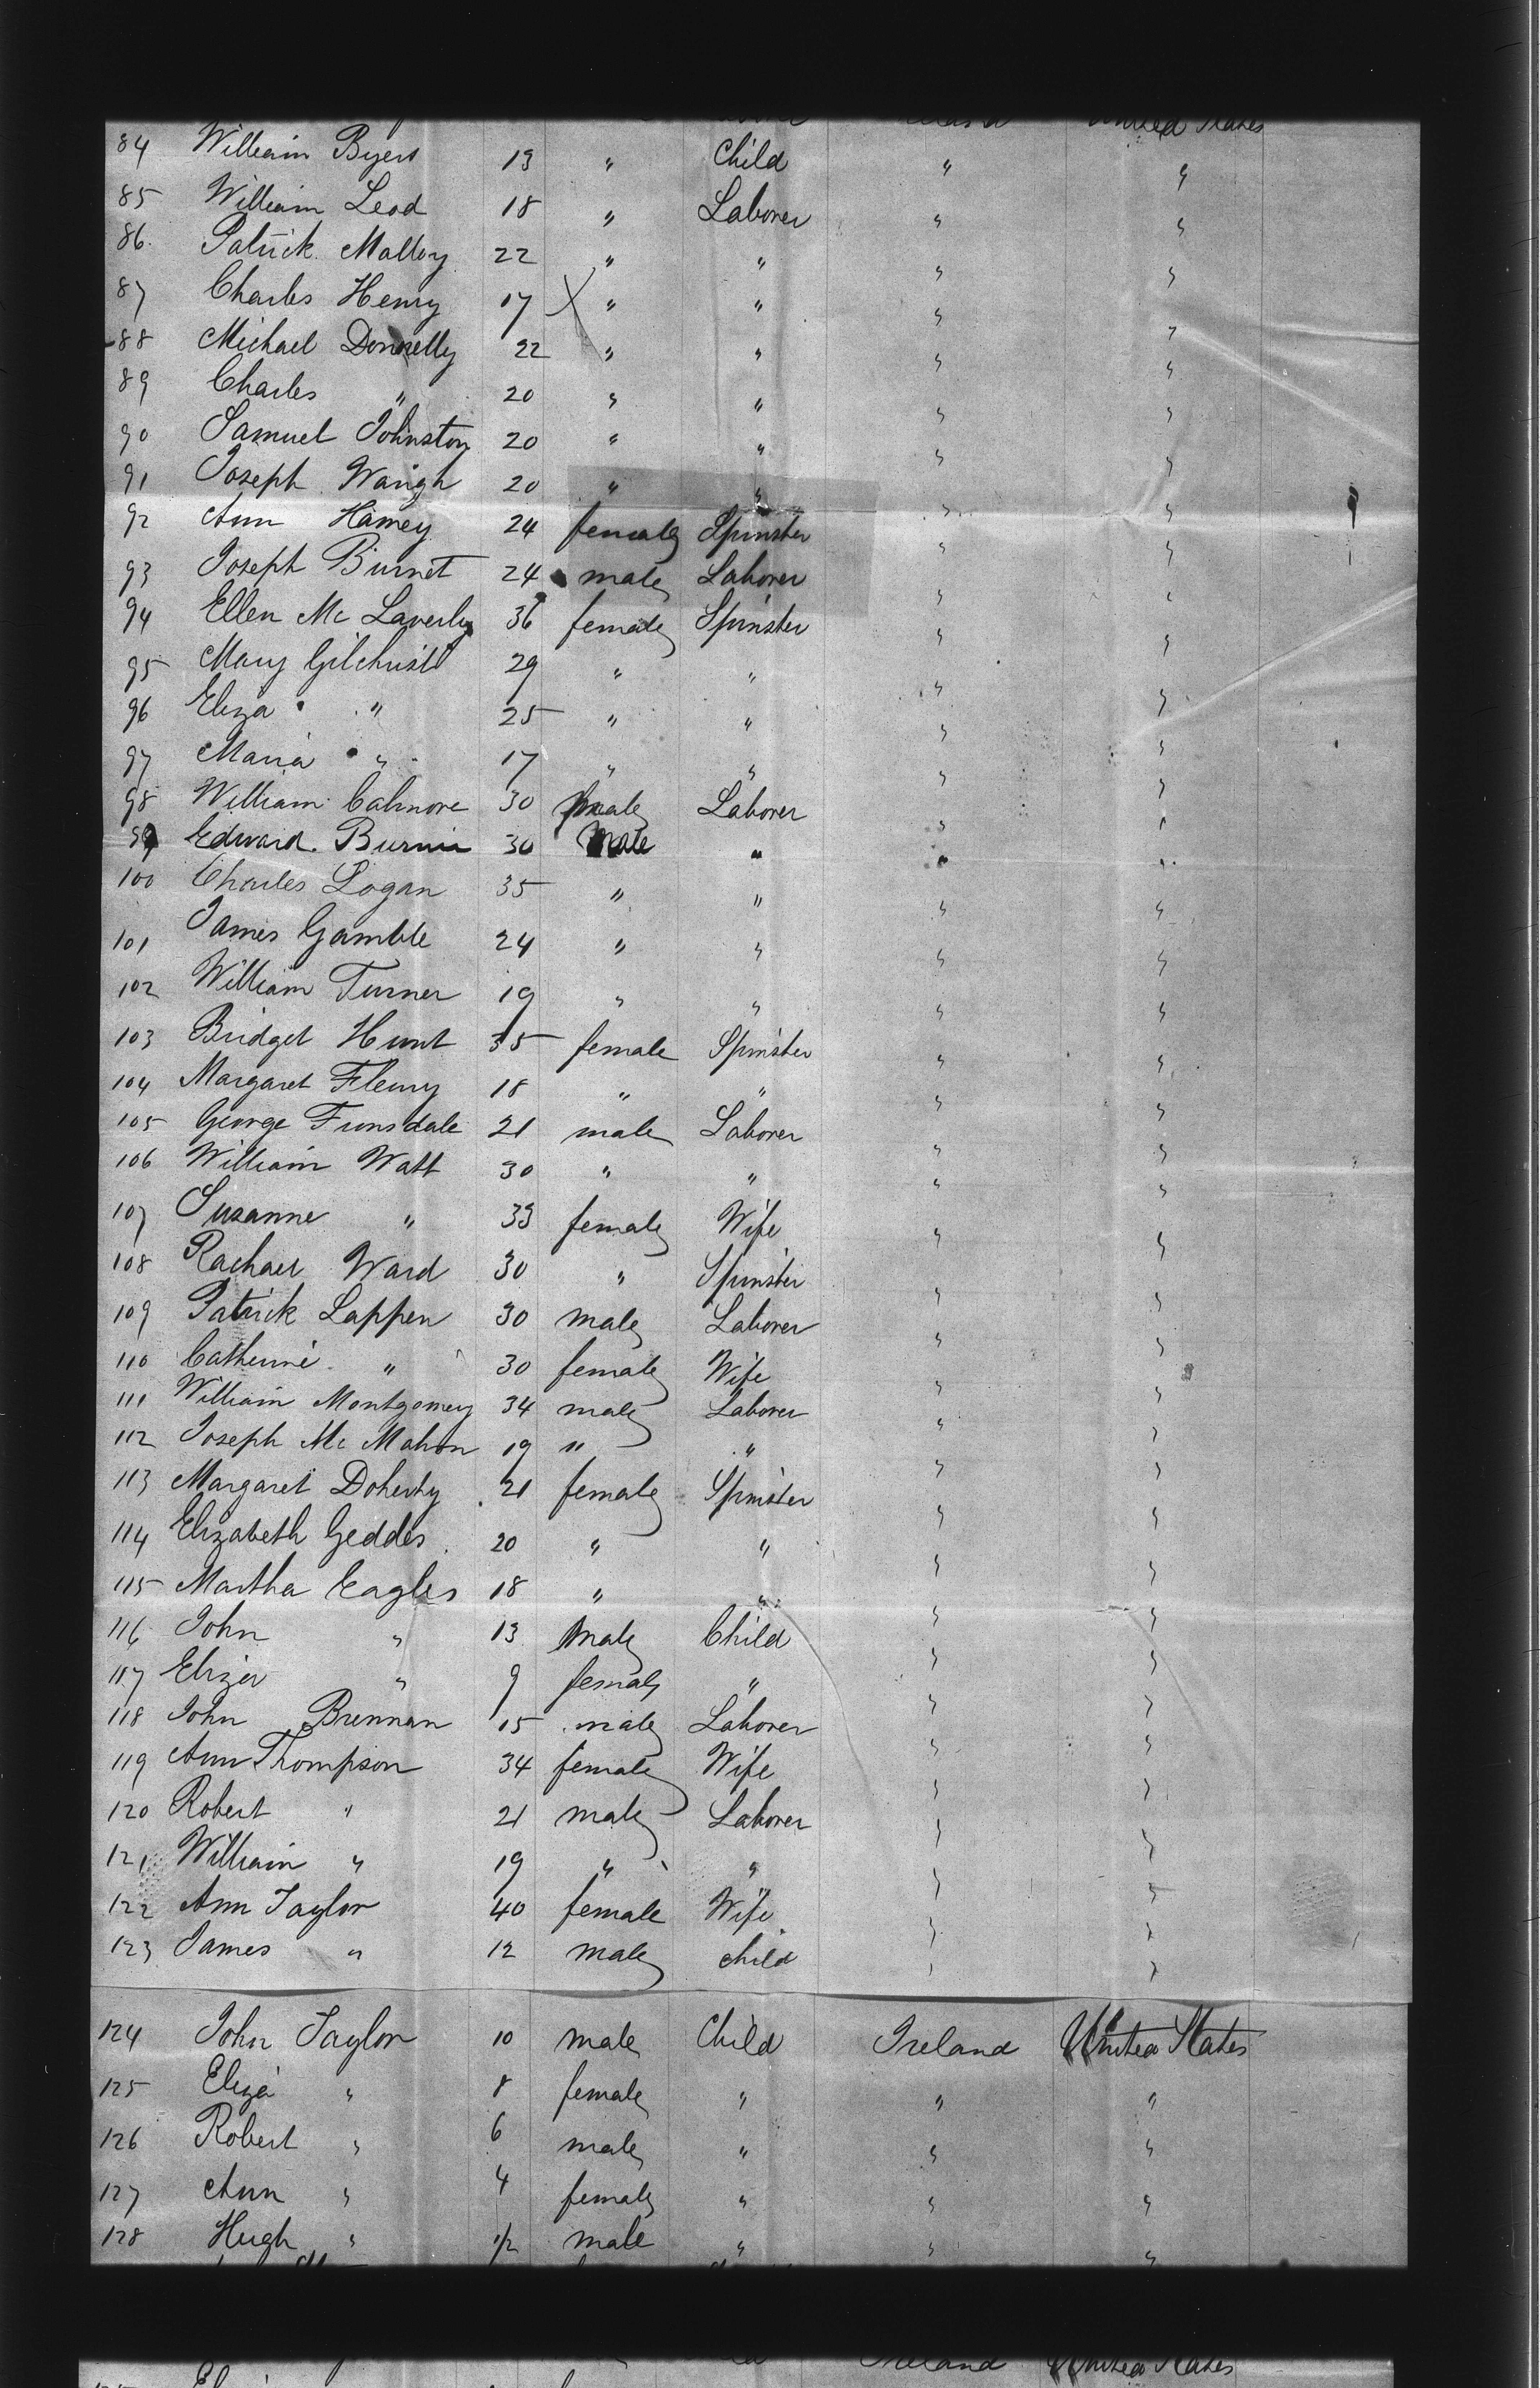 United States
84 William Byers 13 " Child " "
85 William Leod 18 " Laborer " "
86. Patrick Malloy 22 " " " "
87 Charles Henry 17 X " " " "
88 Michael Donnelly 22 " " " "
89 Charles " 20 " " " "
90 Samuel Johnston 20 " " " "
91 Joseph Waugh 20 " " " "
92 Ann Haney 24 female Spinster " "
93 Joseph Burnet 24 male Laborer " "
94 Ellen Mc Laverty 36 female Spinster " "
95 Mary Gilchrist 29 " " " "
96 Eliza " 25 " " " "
97 Maria " 17 " " " "
98 William Calmore 30 male Laborer " "
99 Edward. 30 Male " " "
100 Charles Logan 35 " " " "
101 James Gamble 24 " " " "
102 William Turner 19 " " " "
103 Bridget Hunt 35 female Spinster " "
104 Margaret Fleury 18 " " " "
105 George 21 male Laborer " "
106 William Watt 30 " " " "
107 Susanne " 33 female Wife " "
108 Rachael Ward 30 " Spinster " "
109 Patrick Lappen 30 male Laborer " "
110 Catherine " 30 female Wife " "
111 William Montgomery 34 male Laborer " "
112 Joseph Mc Mahon 19 " " " "
113 Margaret Doherty 21 female Spinster " "
114 Elizabeth Geddes 20 " " " "
115 Martha Eagles 18 " " " "
116 John " 13 Male Child " "
117 Eliza " 9 female " " "
118 John Brennan 15 male Laborer " "
119 Ann Thompson 34 female Wife " "
120 Robert " 21 male Laborer " "
121 William " 19 " " " "
122 Ann Taylor 40 female Wife " "
123 James " 12 male child " "
124 John Taylor 10 male Child Ireland United States
125 Eliza " 8 female " " "
126 Robert " 6 male " " "
127 Ann " 4 female " " "
128 Hugh " 1/2 male " " "
Ireland United States